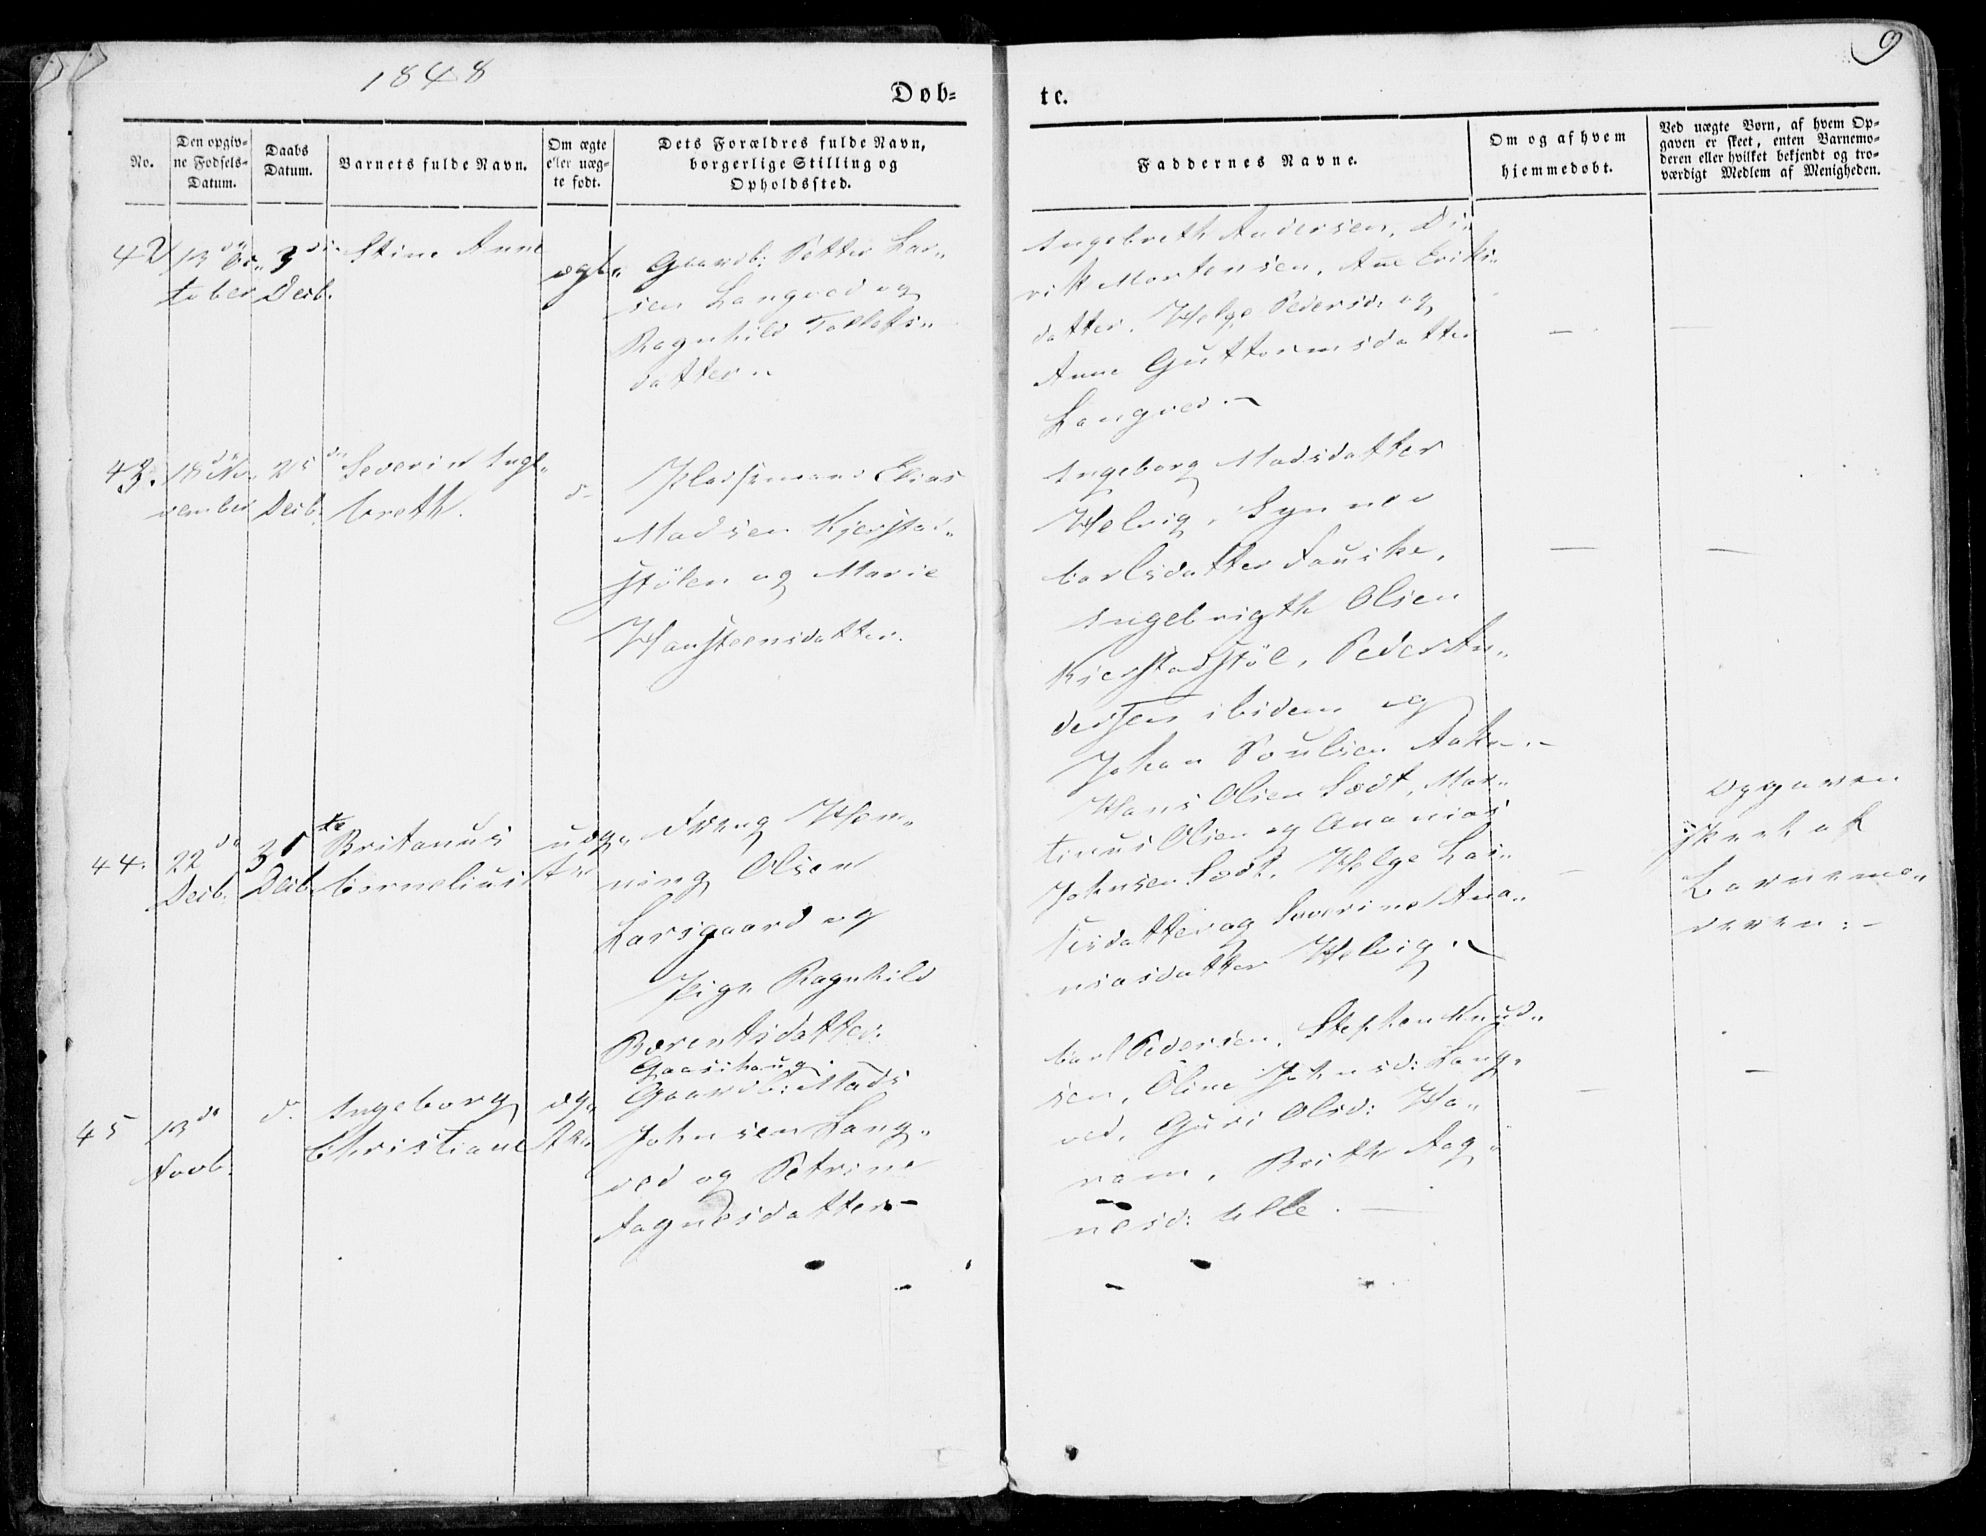 1848
9
Døb=
te.
No.
Den opgiv-
ne Fødsels-
Datum.
Daabs
Datum.
Barnets fulde Navn.
Om ægte
eller uæg-
te født.
Dets Forældres fulde Navn,
borgerlige Stilling og
Opholdssted.
Faddernes Navne.
Om og af hvem
hjemmedøbt.
Ved uægte Børn, af hvem Op-
gaven er skeet, enten Barnemo-
deren eller hvilket bekjendt og tro-
værdigt Medlem af Menigheden.
42
13de Oc„
tober
3die
Decb.
Stine Anne
ægt„
Gaardb: Petter Lar„
sen Langved og
Ragnhild Tollefs„
datter„
Ingebreth Andersen, Di„
rik Mortensen, Ane Eriks„
datter, Helge Pedersd: og
Anne Guttormsdatter
Langved.
43.
18de No„
vember
25de
Decb.
Severin Inge„
breth.
do
Pladsmand Elias
Madsen Kjerstad„
stølen og Marie
Hansteensdatter.
Ingeborg Madsdatter
Helvig, Synnev
Carlsdatter Fauske,
Ingebrigth Olsen
Kjerstadstøl, Peder An„
dersen ibidem og
Johan Poulsen Aake.
44.
22de
Decb.
31te
Decb.
Britanus
Cornelius
uæg„
te
Dreng Hem„
ning Olsen
Larsgaard og
Pige Ragnhild
Berentsdatter
Gaasihaug
Hans Olsen Sædt, Mar„
tinus Olsen og Ananias
Johnsen Sædt, Helge Lar„
sdatter og Severine Ana„
niasdatter Helvig.
Opgaven
skeet af
Barnemo„
deren.
45
13de
Novb.
do
Ingeborg
Christiane
æg„
te
Gaardb: Mads
Johnsen Lang„
ved og Petrine
Aagnesdatter
Carl Pedersen, Stephen Knud„
sen, Oline Johnsd: Lang„
ved, Guri Olsd: Ha„
ram, Brithe Aag„
nesd: Ulle.